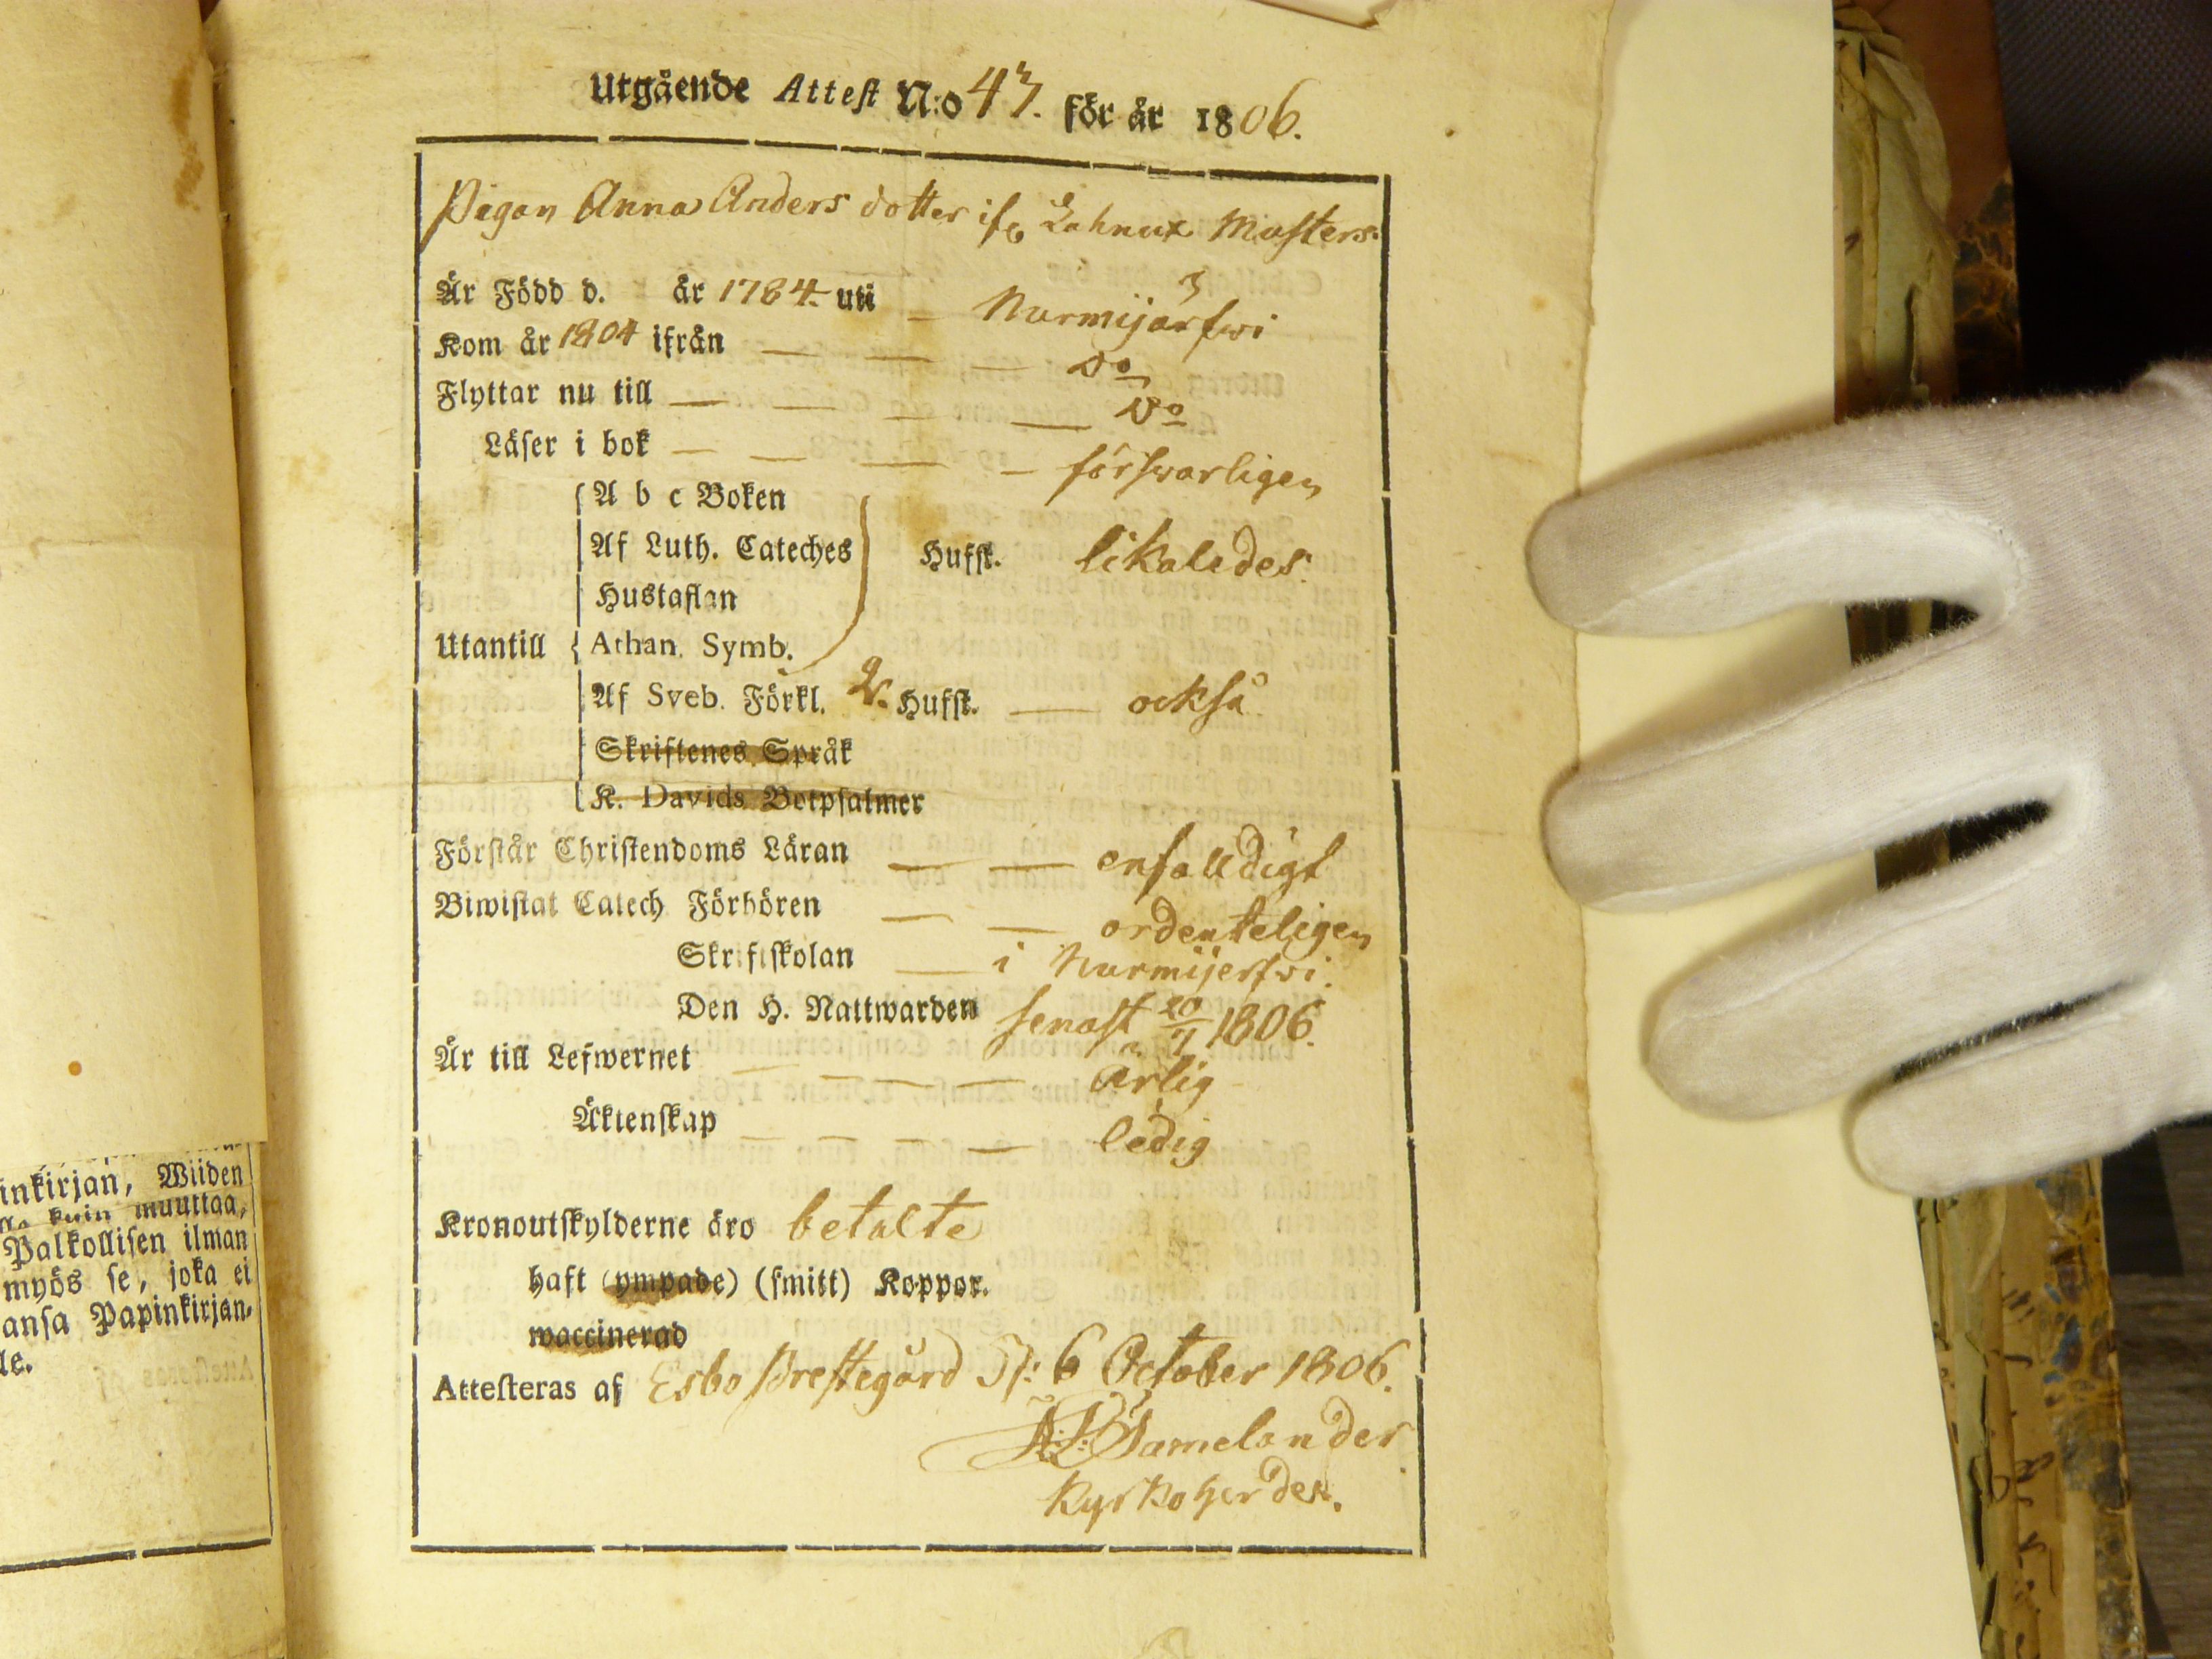 Utgående Attest N:o 47. för år 1806.
Pigan Anna Anders dotter ifr Lahnus Mosters.
Är Född d. år 1784. uti – Nurmijärfwi
Kom år 1804 ifrån — — — Do
Flyttar nu till — — — — Do
Läser i bok — — — – försvarligen
A b c Boken
Af Luth. Cateches Hufst. likaledes.
Hustaflan
Utantill Athan. Symb.
Af Sveb. Förkl. Hufst. — också
Skriftenes Språk
K. Davids Botpsalmer
Förstår Christendoms Läran — — enfalldigt
Biwistat Catech Förhören — — ordenteligen
Skriftskolan — i Nurmijerfvi.
Den H. Nattwarden senast 20/7 1806.
Är till Lefwernet — — — — ärlig
Äktenskap — — — — — ledig
Kronoutskylderne äro betalte
haft (ympade) (smitt) Koppor.
waccinerad
Attesteras af Esbo Prestegård d: 6 October 1806.
Kyrkoherde.
inkirjan, Wiiden
kuin muuttaa,
Palkollisen ilman
myös se, joka ei
ansa Papinkirjan-
le.